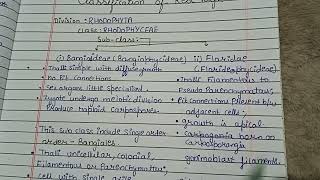 Classification of Red Algae
Division: RHODOPHYTA
Class: RHODOPHYCEAE
Sub-class:
(i) Bangioideae (Bangiophycideae) ii) Florideae
(Florideophycideae)
• Thalli simple with diffuse growth
• Thalli filamentous to
• No Pit Connections
Pseudo Parenchymatous,
• Sex organs little specialized
• Pit Connections Present b/w
• Zygote undergo meiotic division
adjacent cells,
Produce haploid carpospores
• growth is apical
• Carpogonia borne on
• This sub class include single order
order - Bangiales.
• Thalli unicellular, colonial,
gonimoblast filaments.
filamentous or Parenchymatous,
cell with single